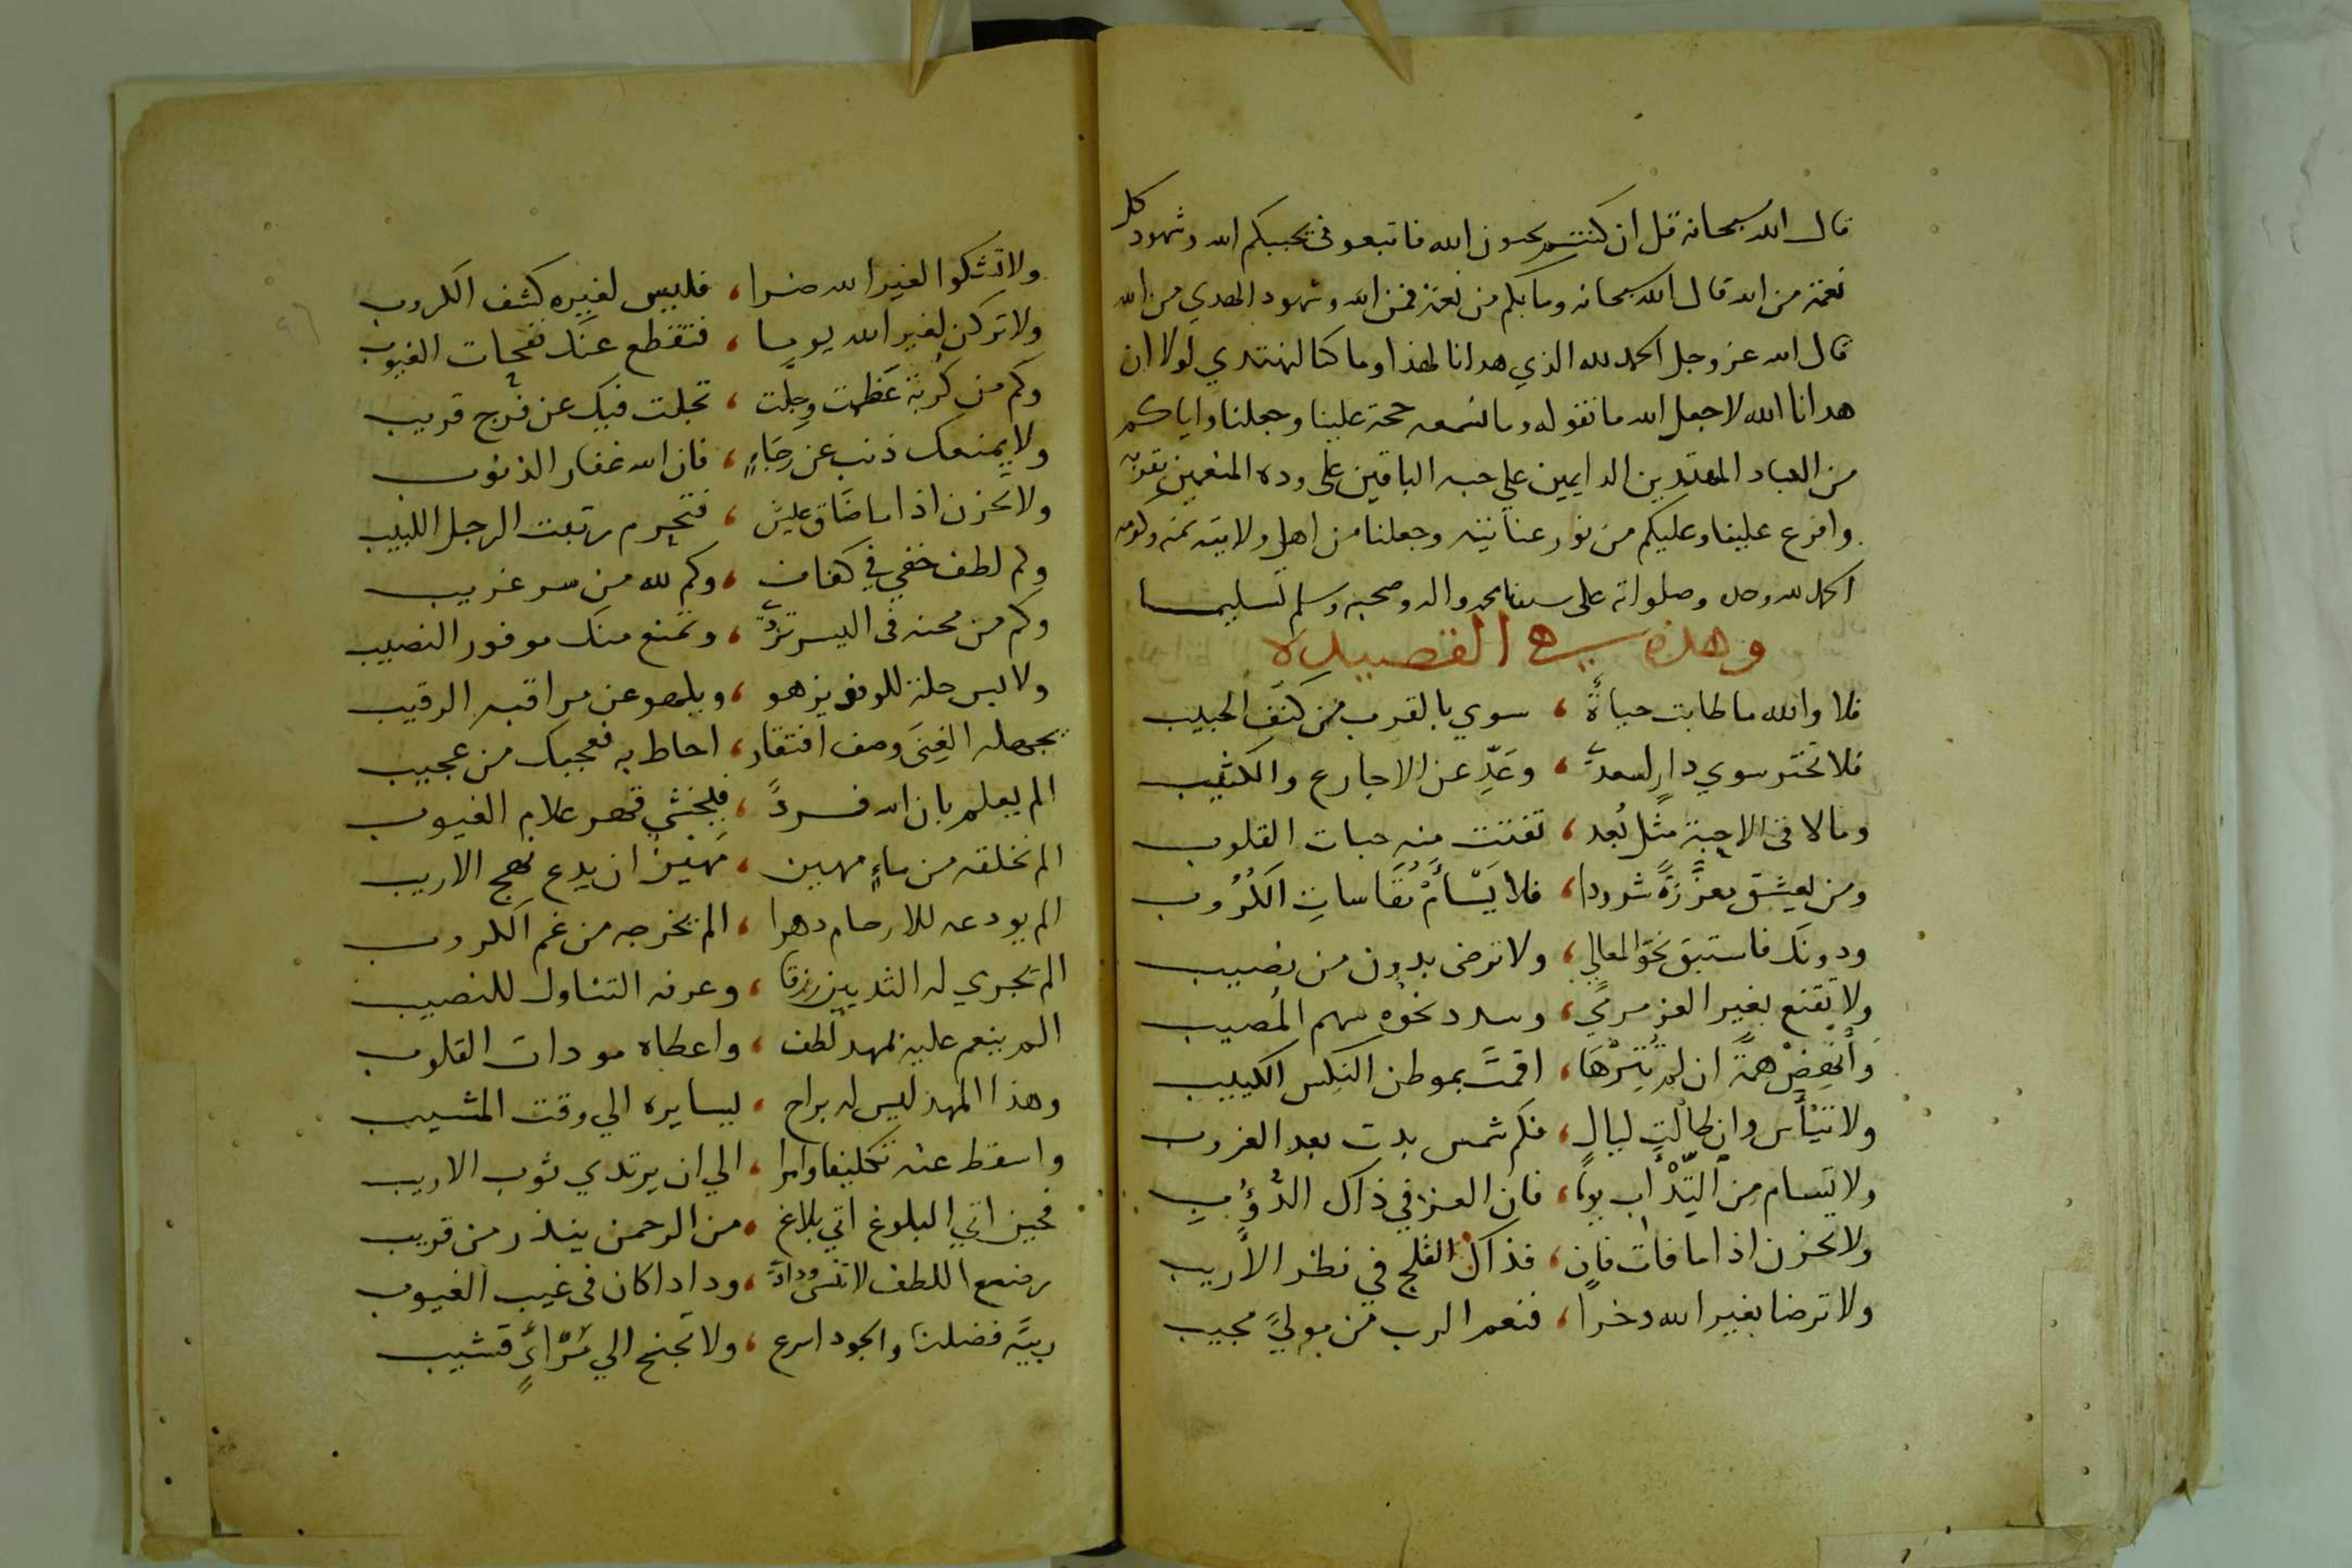 قال الله سبحانه قل ان كنتم تحبون الله فاتبعوني يحببكم الله وشهود كل
نعمة من الله قال الله سبحانه وما بكم من نعمة فمن الله وشهود الهدي من الله
قال الله عز وجل الحمد لله الذي هدانا لهذا وما كنا لنهتدي لولا ان
هدانا الله لا جعل الله ما نقوله وما نسمعه حجة علينا وجعلنا واياكم
من العباد المهتدين الدايمين علي حبه الباقين على وده المنعمين بقربه
وافرغ علينا وعليكم من نور عنايته وجعلنا من اهل ولايته بمنه وكرمه
الحمد لله وحده وصلواته على سيدنا محمد واله وصحبه وسلم تسليما
وهذه هي القصيدة
فلا والله ما طابت حياةٌ ، سوي بالقرب من كنف الحبيب
فلا تختر سوي دارٍ لسعدي ، وعَدِّ عن الاجارع والكثيب
وما لاقى الاحبة مثل بُعد ، تفتت منه حبات القلوب
ومن يعشق معزَّزةً شرودا ، فلا يَسْأَمْ مُقَاساتِ الكُرُوب
ودونَك فاستبق نحو المعالي ، ولا ترضى بدون من نصيب
ولا تَقنع بغير العز مرمي ، وسدد نحوه سهم المُصيب
وأنهِضْ همةً ان لم تُثِرْهَا ، اقمتَ بموطن النكس الكئيب
ولا تيْأس وان طالت ليال ، فكم شمس بدت بعد الغروب
ولا تسام من التِّدْأب يوما ، فان العز في ذاك الدُّؤبِ
ولا تحزن اذا ما فات فانٍ ، فذاك الفلج في نظر الأريب
ولا ترضا بغير الله دخرا ، فنعم الرب من مولي مجيب
ولا تشكوا لغير الله ضرا ، فليس لغيره كشف الكروب
ولا تركن لغير الله يوما ، فتقطع عنك نفحات الغيوب
وكم من كُربة عَظمت وجلَّت ، تجلت فيك عن فرج قريب
ولا يمنعك ذنب عن رجَاءٍ ، فان الله غفار الذنوب
ولا تحزن اذا ما ضَاق عيش ، فتحرم رتبت الرجل اللبيب
وكم لطف خفي في كفاف ، وكم لله من سر غريب
وكم من محنه فى اليسر تردي ، وتمنع منك موفور النصيب
ولابس حلة للوفر يزهو ، ويلهو عن مراقبه الرقيب
تجهله الغِنَى وصف افتقار ، احاط به فعجبك من عجيب
الم يعلم بان الله فردً ، فيخشي قهر علام الغيوب
الم نخلقه من ماءٍ مهين ، مَهينٌ ان يدع نهج الاريب
الم يودعه للارحام دهرا ، الم يخرجه من غم الكروب
الم تجري له الثديين رزقا ، وعرفه التناول للنصيب
الم ينعم عليه بمهد لطف ، واعطاه مودات القلوب
وهذا المهد ليس له براح ، يسايره الي وقت المشيب
واسقط عنه تكليفا وامرا ، الي ان يرتدي ثوب الاريب
فحين اتي البلوغ اتي بلاغ ، من الرحمن ينذر من قريب
رضيع اللطف لا تنس ودادا ، ودادا كان فى غيب الغيوب
ربيَّه فضلنا والجود اسرع ، ولا تجنح الي مَرْأيٍ قشيب